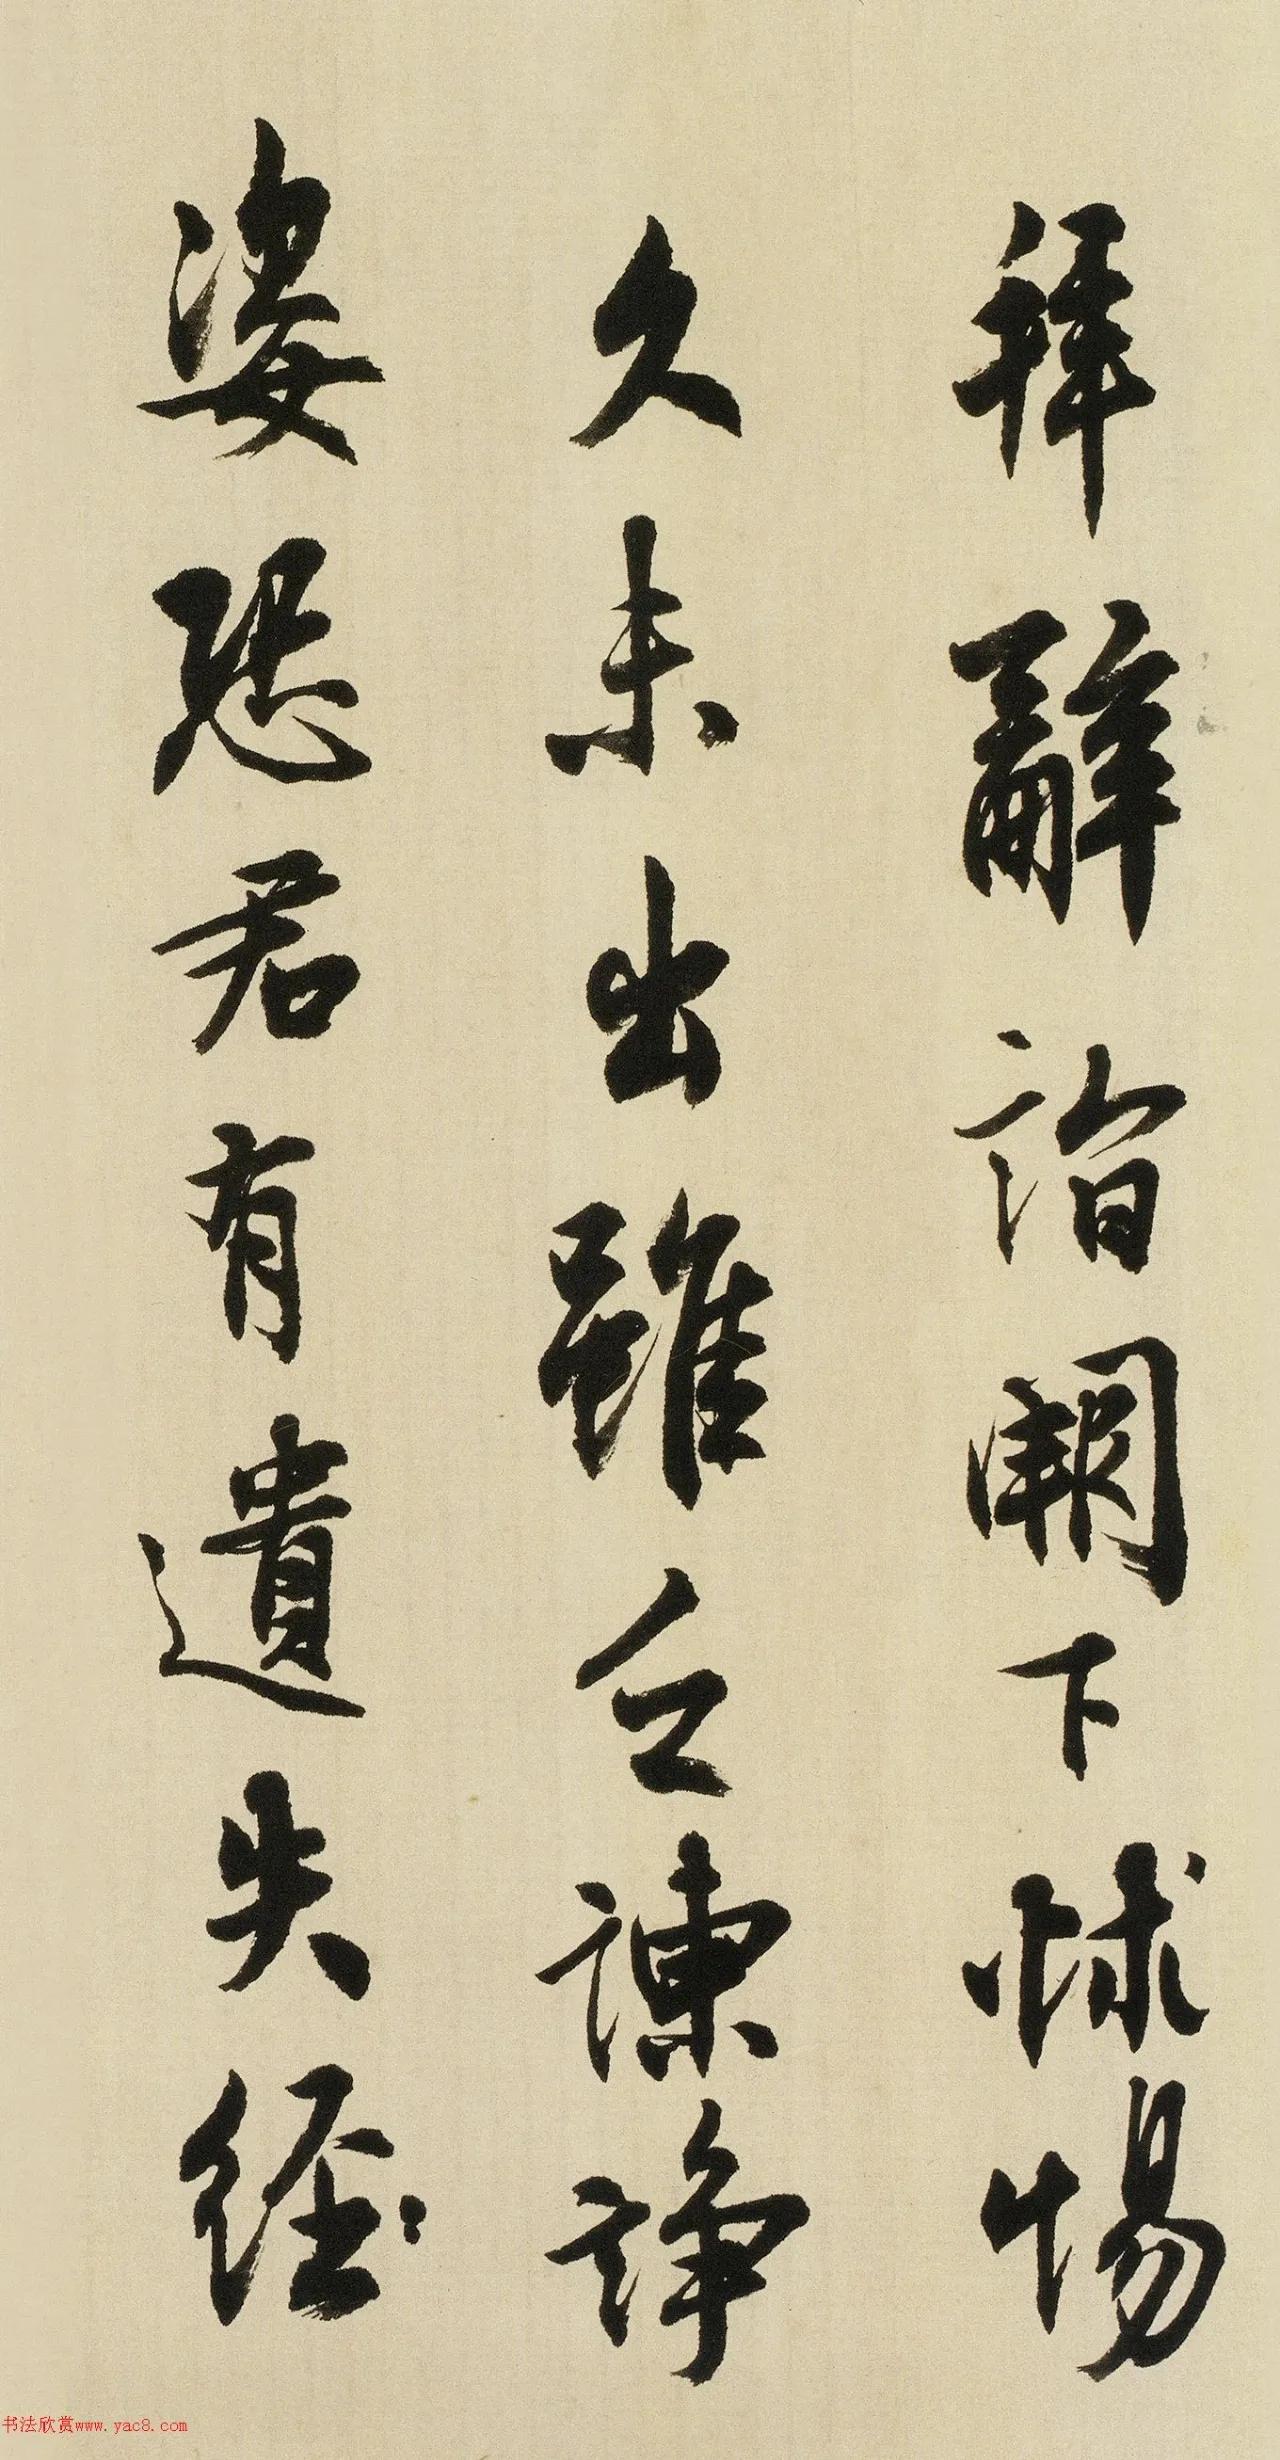 拜辭詣闕下怵惕
久未出雖乏諫諍
姿恐君有遺失經
书法欣赏www.yac8.com